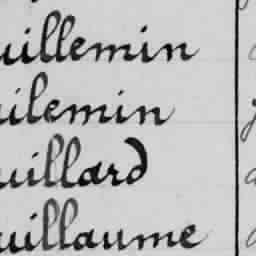 uillemin
uilemin
uillard
uillaume